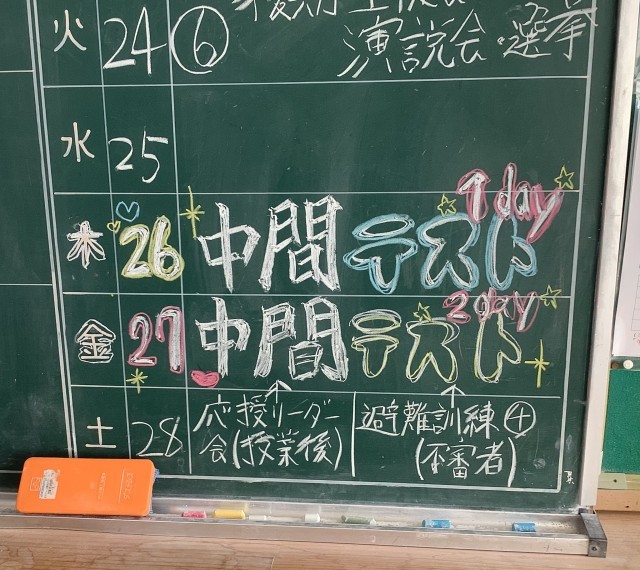 火 24 ⑥ 演説会・選挙
水 25
木 26 中間テスト 1day
金 27 中間テスト 2day
土 28 応援リーダー会(授業後) 避難訓練④(不審者)